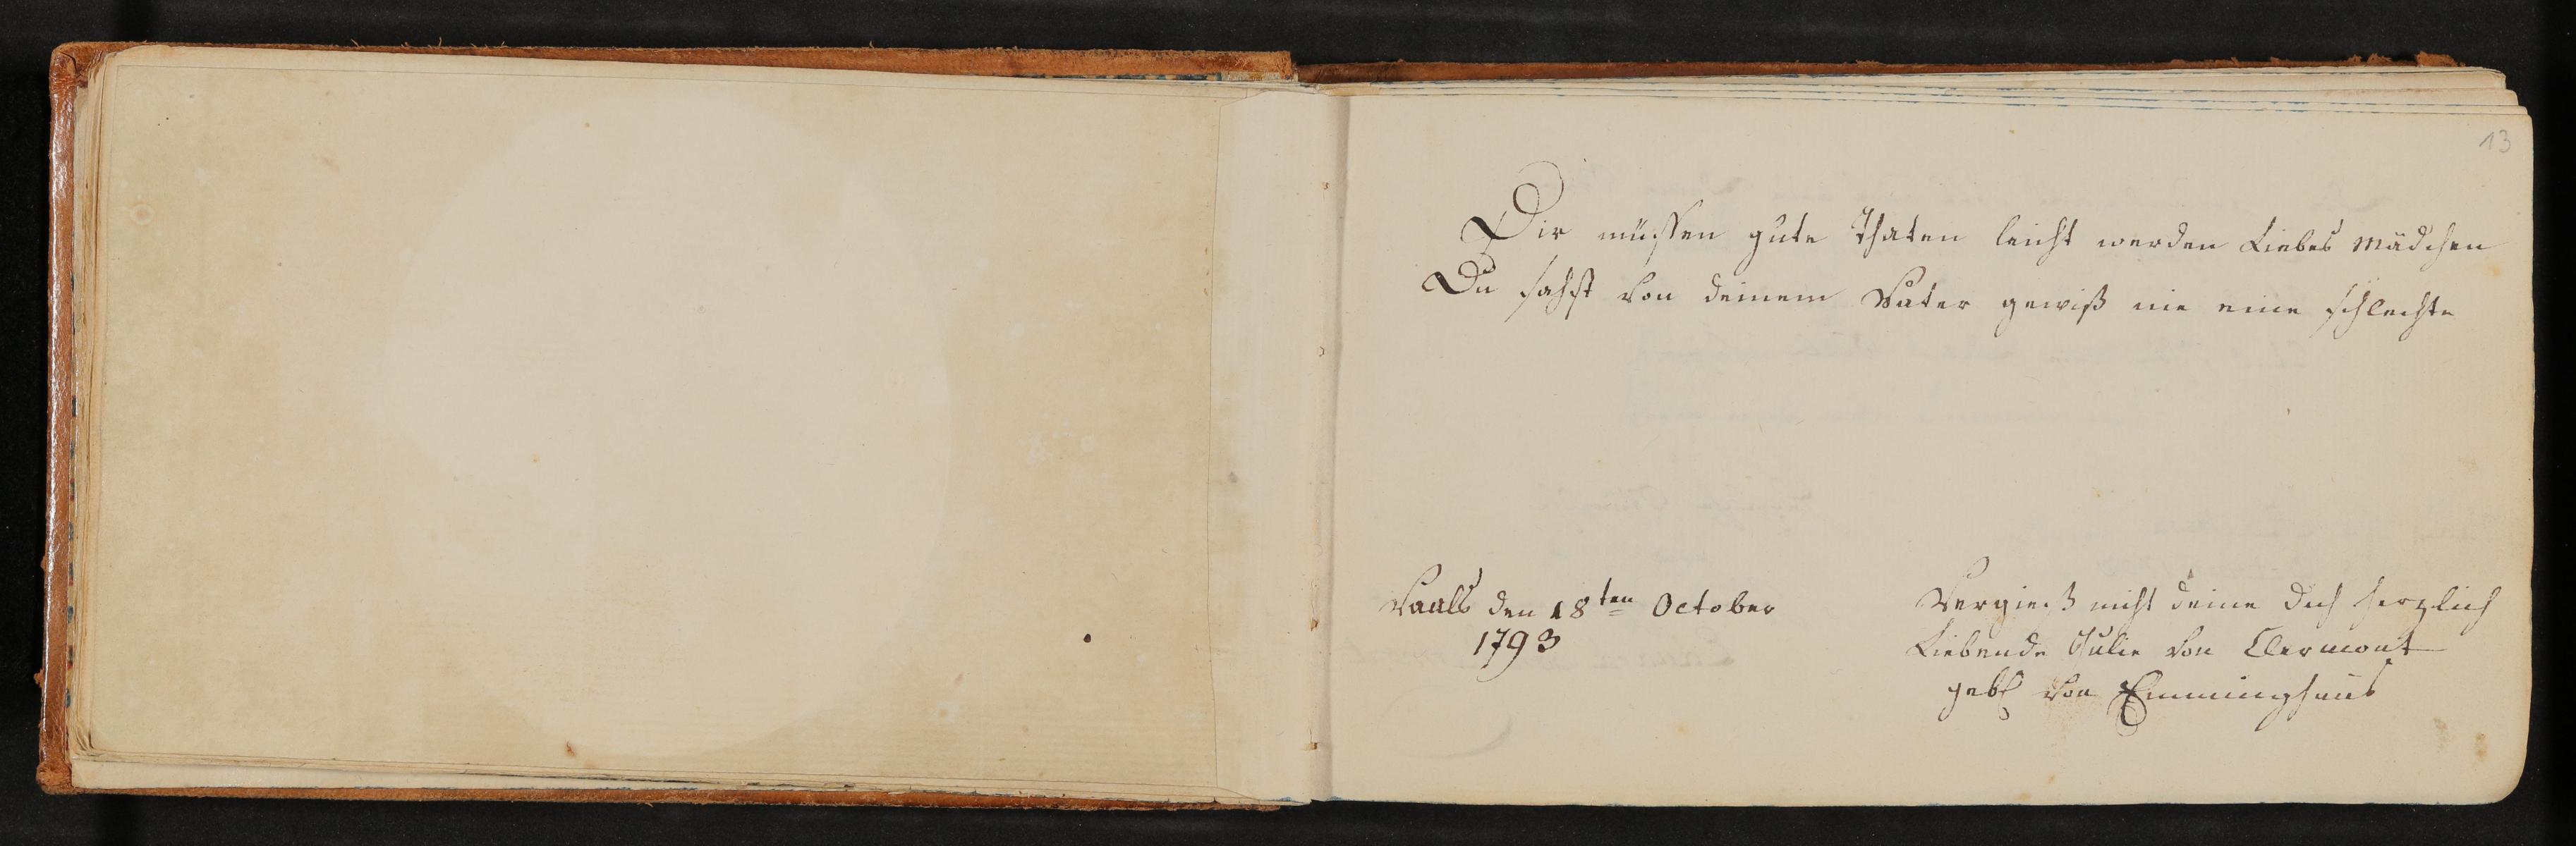 13
Dir müssen gute Thaten leicht werden Liebes Mädchen
Du sahst von deinem Vater gewiß nie eine schlechte
Vaals den 18ten October
1793
Vergieß nicht deine dich herzlich
Liebende Julie von Clermont
geb von Emminghaus